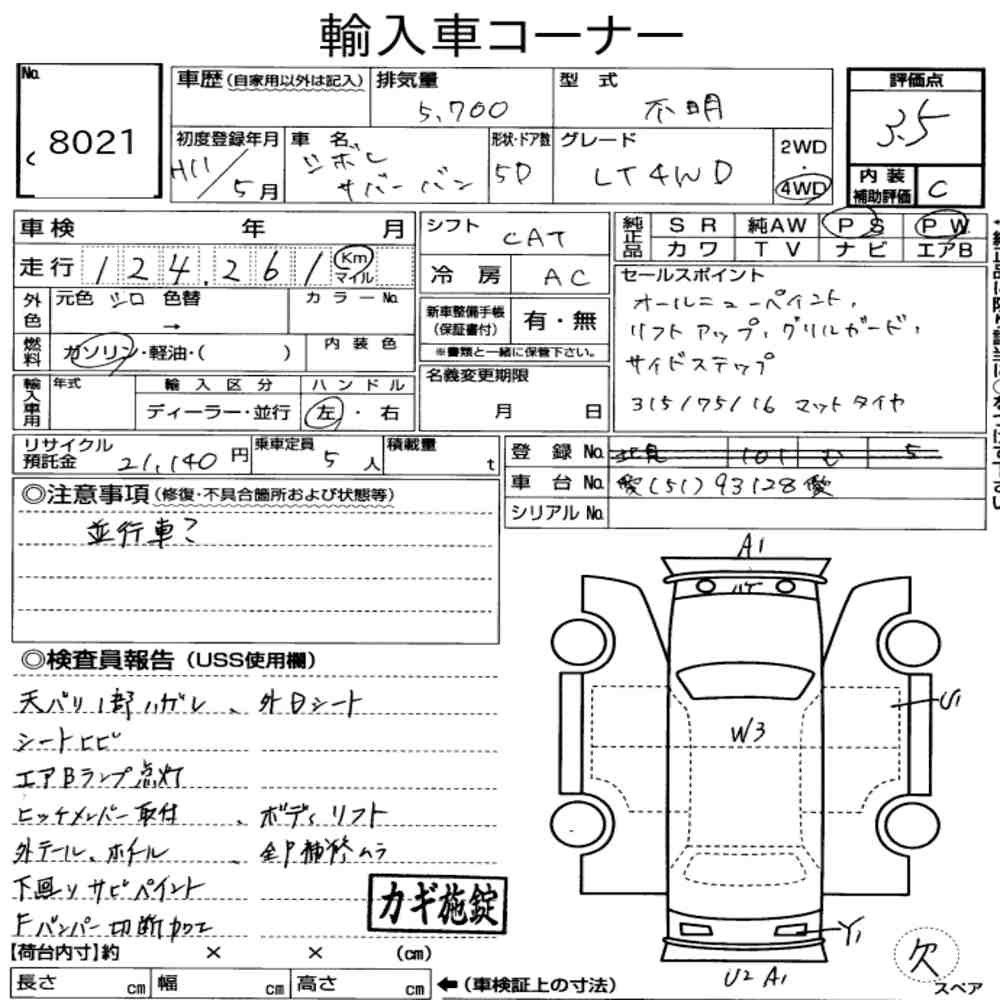 輸入車コーナー
No.
8021
車歴(自家用以外は記入)
排気量
5,700
型 式
不明
評価点
3.5
初度登録年月
H11/5月
車 名
シボレ
サバーバン
形状・ドア数
5D
グレード
LT 4WD
2WD
・
4WD
内装
補助評価
C
車検 年 月
シフト
CAT
純正品
SR 純AW PS PW
カワ TV ナビ エアB
走行 124,261 Km
マイル
冷 房
AC
セールスポイント
オールニューペイント,
リフトアップ,グリルガード,
サイドステップ
315/75/16 マットタイヤ
外色
元色 シロ 色替
→
カラーNo.
新車整備手帳
(保証書付)
有・無
※書類と一緒に保管下さい。
燃料
ガソリン・軽油・( )
内装色
名義変更期限
月 日
輸入車用
年式
輸入区分
ディーラー・並行
ハンドル
左・右
リサイクル
預託金
21,140円
乗車定員
5人
積載量
t
登 録 No.
北見 101 む 5
車 台 No.
愛(51)93128愛
シリアル No.
◎注意事項(修復・不具合箇所および状態等)
並行車?
◎検査員報告(USS使用欄)
天バリ1部ハガレ、外日シート
シートヒビ
エアBランプ点灯
ヒッチメンバー取付、ボディリフト
外テール、ホイール、全P補修ムラ
下回りサビペイント
Fバンパー切断加工
カギ施錠
【荷台内寸】約 × × (cm)
長さ cm 幅 cm 高さ cm
←(車検証上の寸法)
A1
W3
Y1
U2 A1
欠
スペア